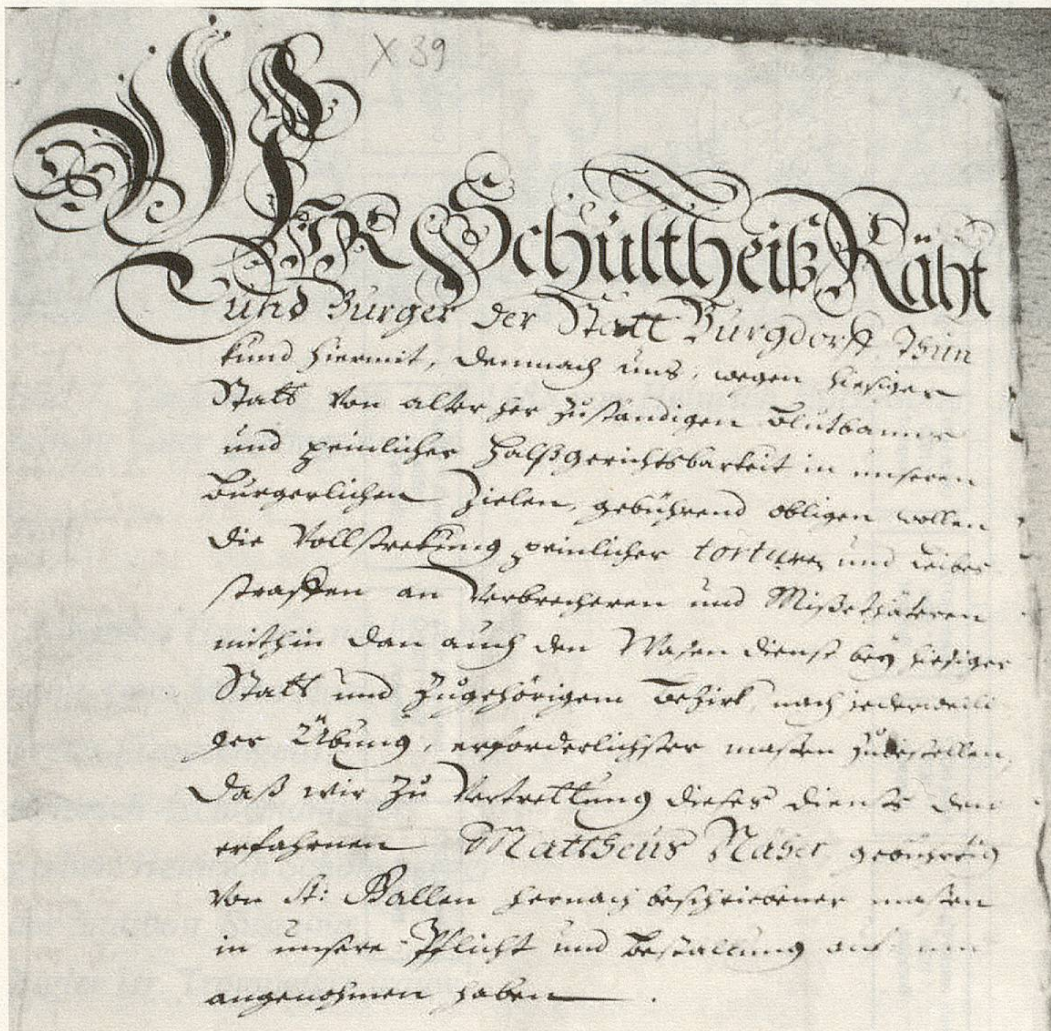 X 39
WIR Schultheiß Räht
und Burger der Statt Burgdorff, Thun
kund hiermit, demnach uns, wegen hiesiger
Statt von alter her zuständigen Blutbanns
und peinlicher Halßgerichtsbarkeit in unseren
Burgerlichen Zielen, gebührend obligen wollen
die Vollstrekung peinlicher torturen und Leibes
straffen an Verbrecheren und Mißethäteren
mithin dan auch den Wasen dienst bey hiesiger
Statt und zugehörigem Bezirk, nach jederweili
ger Übung, erforderlichster massen zubestellen,
daß wir zu Vertrettung dieses diensts den
erfahrnen Mattheus Näher, gebürtig
von St: Gallen hernach beschriebener massen
in unsere Pflicht und Bestallung auf und
angenohmen haben .